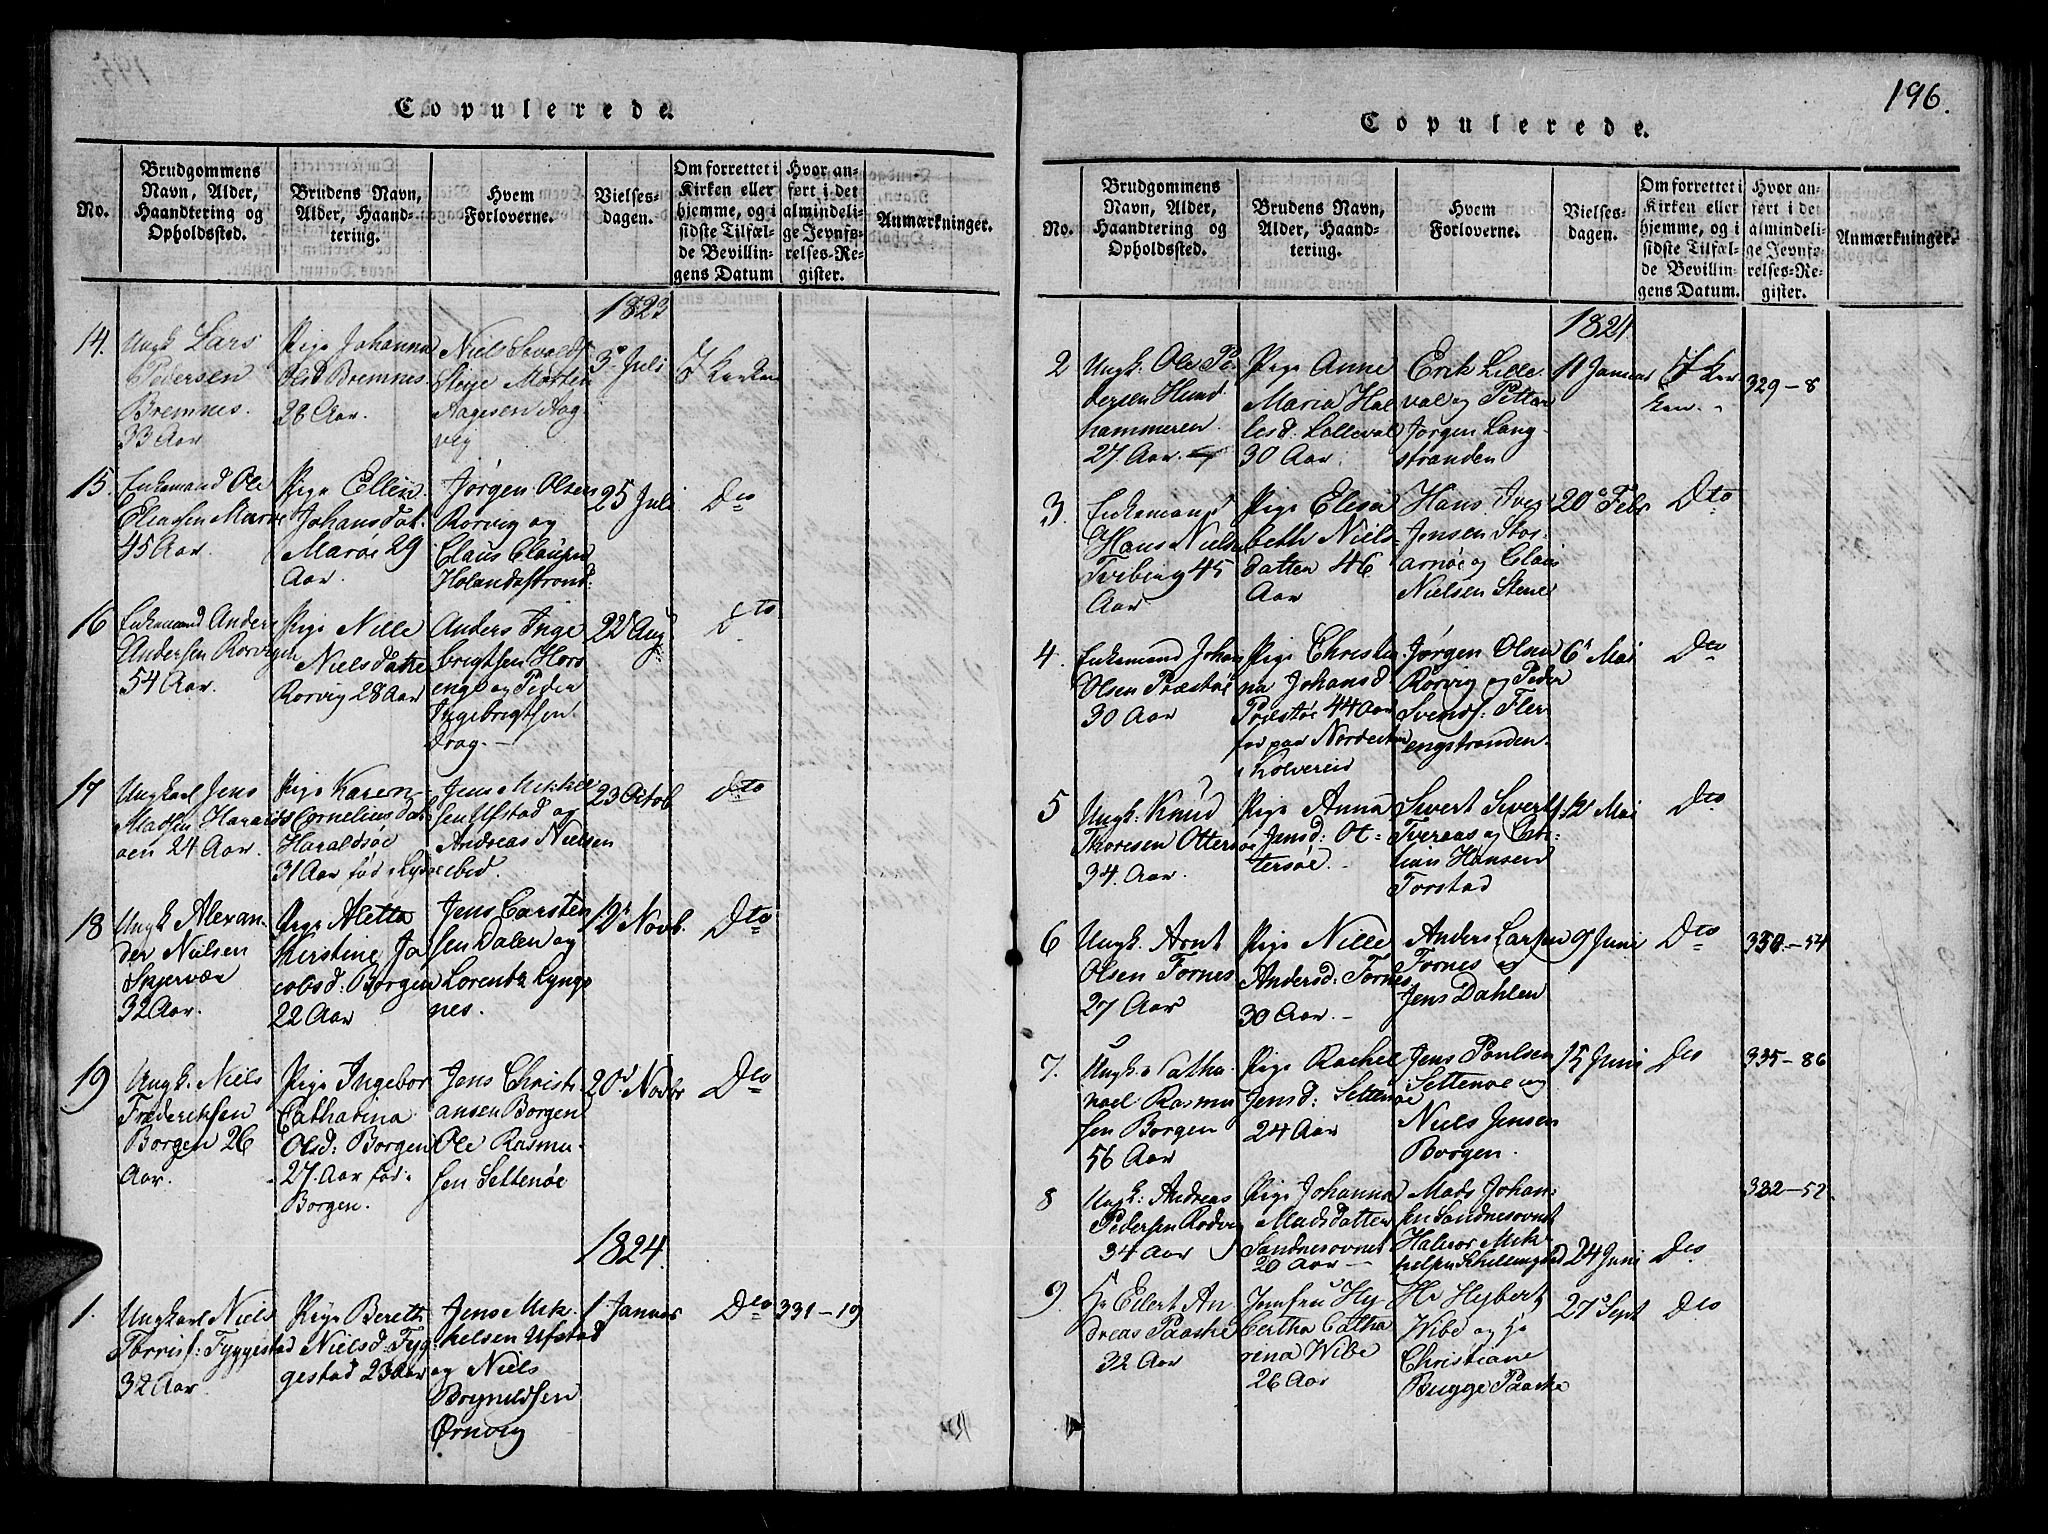 Copulerede.
No.
Brudgommens Navn, Alder, Haandtering og Opholdssted.
Brudens Navn, Alder, Haandtering.
Hvem Forloverne.
Vielsesdagen.
Om forrettet i Kirken eller hjemme, og i sidste Tilfælde Bevillingens Datum
Hvor anført i det almindelige Jevnførelses-Register.
Anmærkninger.
1823
14.
Ungk Lars
Pedersen
Bremnes.
33 Aar
Pige Johanna
Olsd Bremnes.
28 Aar.
Niels
Morten
Aagesen Aag
vig
3. Juli
I Kirken
15.
Enkemand Ole
Eliassen Marøe
45 Aar.
Pige Ellen
Johansdat.
Marøe 29
Aar.
Jørgen Olsen
Rørvig og
Claus Clausen
Holandsstrand:
25 Juli
Do
16
Enkemand Anders
Andersen Rorvigen
54 Aar.
Pige Nille
Nielsdatte
Rorvig 28 Aar
Anders Inge
brigtsen Hors
enge og Peder
Ingebrigtsen
Drag. —
22 Aug
Dto
17
Ungkarl Jens
Madsen Haralds
øen 24 Aar.
Pige Karen
Cornelius dat
Haraldsøe
31 Aar fød i
Jens Mikkel
sen Ufstad og
Andreas Nielsen
23 Octob
Dto
18
Ungk Alexan
der Nielsen
Skjervær
32 Aar.
Pige Aletta
Kirstine Ja
cobsd: Borgen
22 Aar
Jens Carsten
sen Dalen og
Lorentz Lyngs
nes.
12 Novb.
Dto
19
Ungk. Niels
Frederiksen
Borgen 26
Aar.
Pige Ingebor
Catharina
Olsd: Borgen
27. Aar fød
Borgen.
Jens Christi
ansen Borgen
Ole Rasmu
sen Settenøe
20 Novbr
Do
1824.
1.
Ungkarl Niels
Torrisf: Fyggestad
32 Aar
Pige Bereth
Nielsd Fyg
gestad 23 Aar
Jens Mik
kelsen Ufstad
og Niels
Brynildsen
Ørnvig
1 Januar
Do
331-19
196.
Copulerede.
No.
Brudgommens Navn, Alder, Haandtering og Opholdssted.
Brudens Navn, Alder, Haandtering.
Hvem Forloverne.
Vielsesdagen.
Om forrettet i Kirken eller hjemme, og i sidste Tilfælde Bevillingens Datum.
Hvor anført i det almindelige Jevnførelses-Register.
Anmærkninger.
1824.
2
Ungk. Ole Pe
dersen Hund
hammeren.
27. Aar.
Pige Anne
Maria Hal
lesd: Lolleval
30 Aar.
Erik Lille
val og Petter
Jørgen Lang
stranden
11 Januar
I Kir
ken.
329-8
3.
Enkemand
Hans Nielsen
Treiberg 45
Aar
Pige Elesa
beth Niels
datter 46
Aar
Hans Iver
Jensen Stor
arnøe og Claus
Nielsen Stene
20 Febr
Dto
4.
Enkemand Johan
Olsen Præstøe
30 Aar
Pige Christi
na Johansd
Præstøe 44 Aar
Jørgen Olsen
Rørvig og Peder
Svends: Fler
engstranden.
6 Mai
Do
5
Ungk: Knud
Thoresen Otters
34. Aar.
Pige Anna
Jensd: Ot=
tersøe.
Sivert Siverts
Tveraas og
Hansen
Torstad
12 Mai
Do
6
Ungk. Arnt
Olsen Fornes
27 Aar
Pige Nille
Andersd: Fornes
30 Aar. —
Anders Larsen
Fornes og
Jens Dahlen
9 Juni
Do
330.-54
7.
Ungk: Natha
nael Rasmu
sen Borgen
56 Aar
Pige Rachel
Jensd: Settenøe
24 Aar
Jens Poulsen
Settenøe og
Niels Jensen
Borgen.
15 Juni
Do
335-86
8
Ungk: Andreas
Pedersen Rodvig
34 Aar
Pige Johanna
Madsdatter
Sandnesovnet
20 Aar —
Mads Johan
sen Sandnesovnet
Halvor Mik
kelsen
24 Juni
Do
332-52.
9.
Hr Eilert An
dreas Paaske
32 Aar
Jomfru Hy
bertha Catha
rina Wibe
26 Aar
Hr Hybert
Wibe og Hr
Christiane
Bugge Paaske
27 Sept
Do